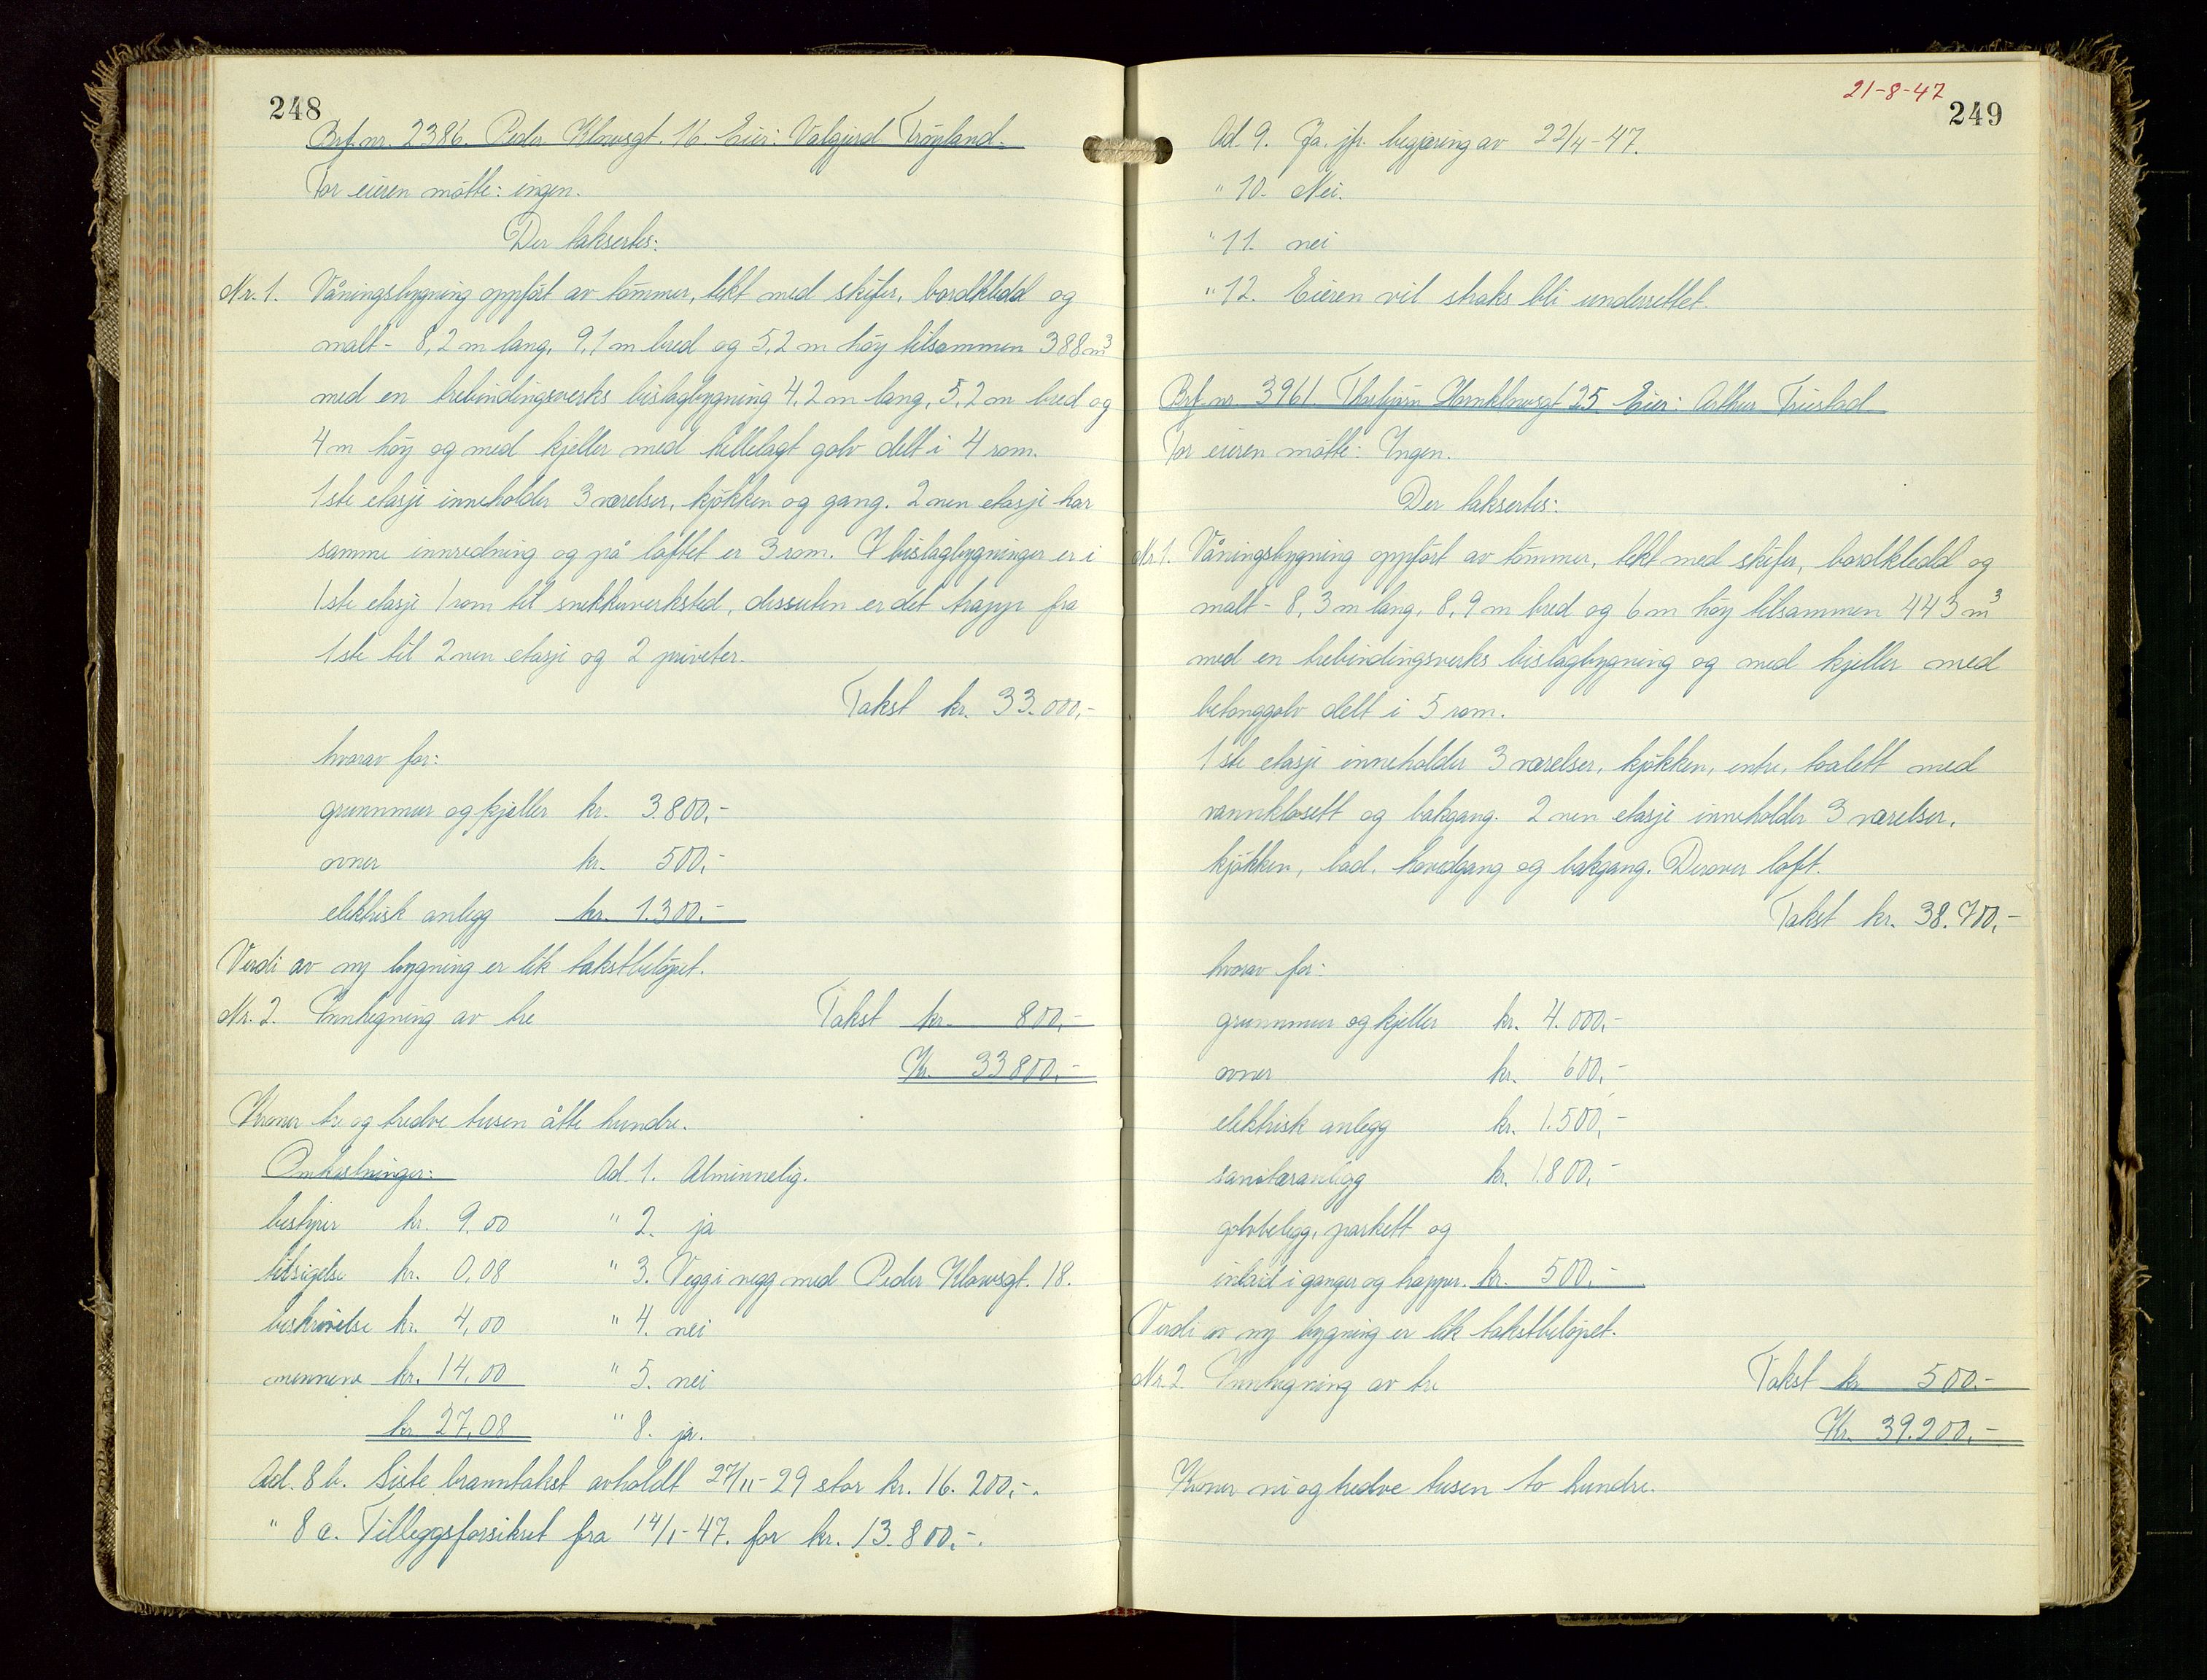 248
Brf. nr. 2386. Peder Klowsgt. 16. Eier: Valgjerd Tröyland.
For eieren mötte: ingen.
Der taksertes:
Nr. 1. Våningsbygning oppfört av tömmer, tekt med skifer, bordkledd og
malt - 8,2 m lang, 9,1 m bred og 5,2 m höy tilsammen 388 m³
med en trebindingsverks bislagbygning 4,2 m lang, 5,2 m bred og
4 m höy og med kjeller med hellelagt golv delt i 4 rom.
1ste etasje inneholder 3 værelser, kjökken og gang. 2nen etasje har
samme innredning og på loftet er 3 rom. I bislagbygningen er i
1ste etasje 1 rom til snekkerverksted, dessuten er det trapp fra
1ste til 2nen etasje og 2 priveter.
Takst kr. 33.000,-
hvorav for:
grunnmur og kjeller kr. 3.800,-
ovner kr. 500,-
elektrisk anlegg kr. 1.300.-
Verdi av ny bygning er lik takstbelöpet.
Nr. 2. Innhegning av tre Takst kr. 800,-
Kr. 33800,-
Kroner tre og tredve tusen åtte hundre.
Omkostninger: Ad. 1. Alminnelig.
bestyrer kr. 9.00 " 2. ja
tilsigelse kr. 0,08 " 3. Vegg i vegg med Peder Klowsgt. 18.
beskrivelse kr. 4,00 " 4. nei
mennene kr. 14,00 " 5. nei
kr. 27,08 " 8. ja.
Ad. 8 b. Siste branntakst avholdt 27/11-29 stor kr. 16.200,-.
" 8 c. Tilleggsforsikret fra 14/1-47. for kr. 13.800,-.
21-8-47
249
Ad. 9. Ja. jfr. begjæring av 22/4-47.
" 10. Nei.
" 11. nei
" 12. Eieren vil straks bli underrettet.
Brf. nr. 3961. Thorbjörn Hornklowsgt 25 Eier: Arthur Friestad
For eieren mötte: Ingen.
Der taksertes:
Nr. 1. Våningsbygning oppfört av tömmer, tekt med skifer, bordkledd og
malt - 8,3 m lang, 8,9 m bred og 6 m höy tilsammen 443 m³
med en trebindingsverks bislagbygning og med kjeller med
betonggolv delt i 5 rom.
1ste etasje inneholder 3 værelser, kjökken, entre, toalett med
vannklosett og bakgang. 2nen etasje inneholder 3 værelser,
kjökken, bad, hovedgang og bakgang. Derover loft.
Takst kr. 38.700,-
hvorav for:
grunnmur og kjeller kr. 4.000,-
ovner kr. 600,-
elektrisk anlegg kr. 1.500,-
sanitæranlegg kr. 1.800,-
golvbelegg, parkett og
inlaid i ganger og trapper. kr. 500,-
Verdi av ny bygning er lik takstbelöpet.
Nr. 2. Innhegning av tre Takst kr 500.-
Kr. 39.200.-
Kroner ni og tredve tusen to hundre.